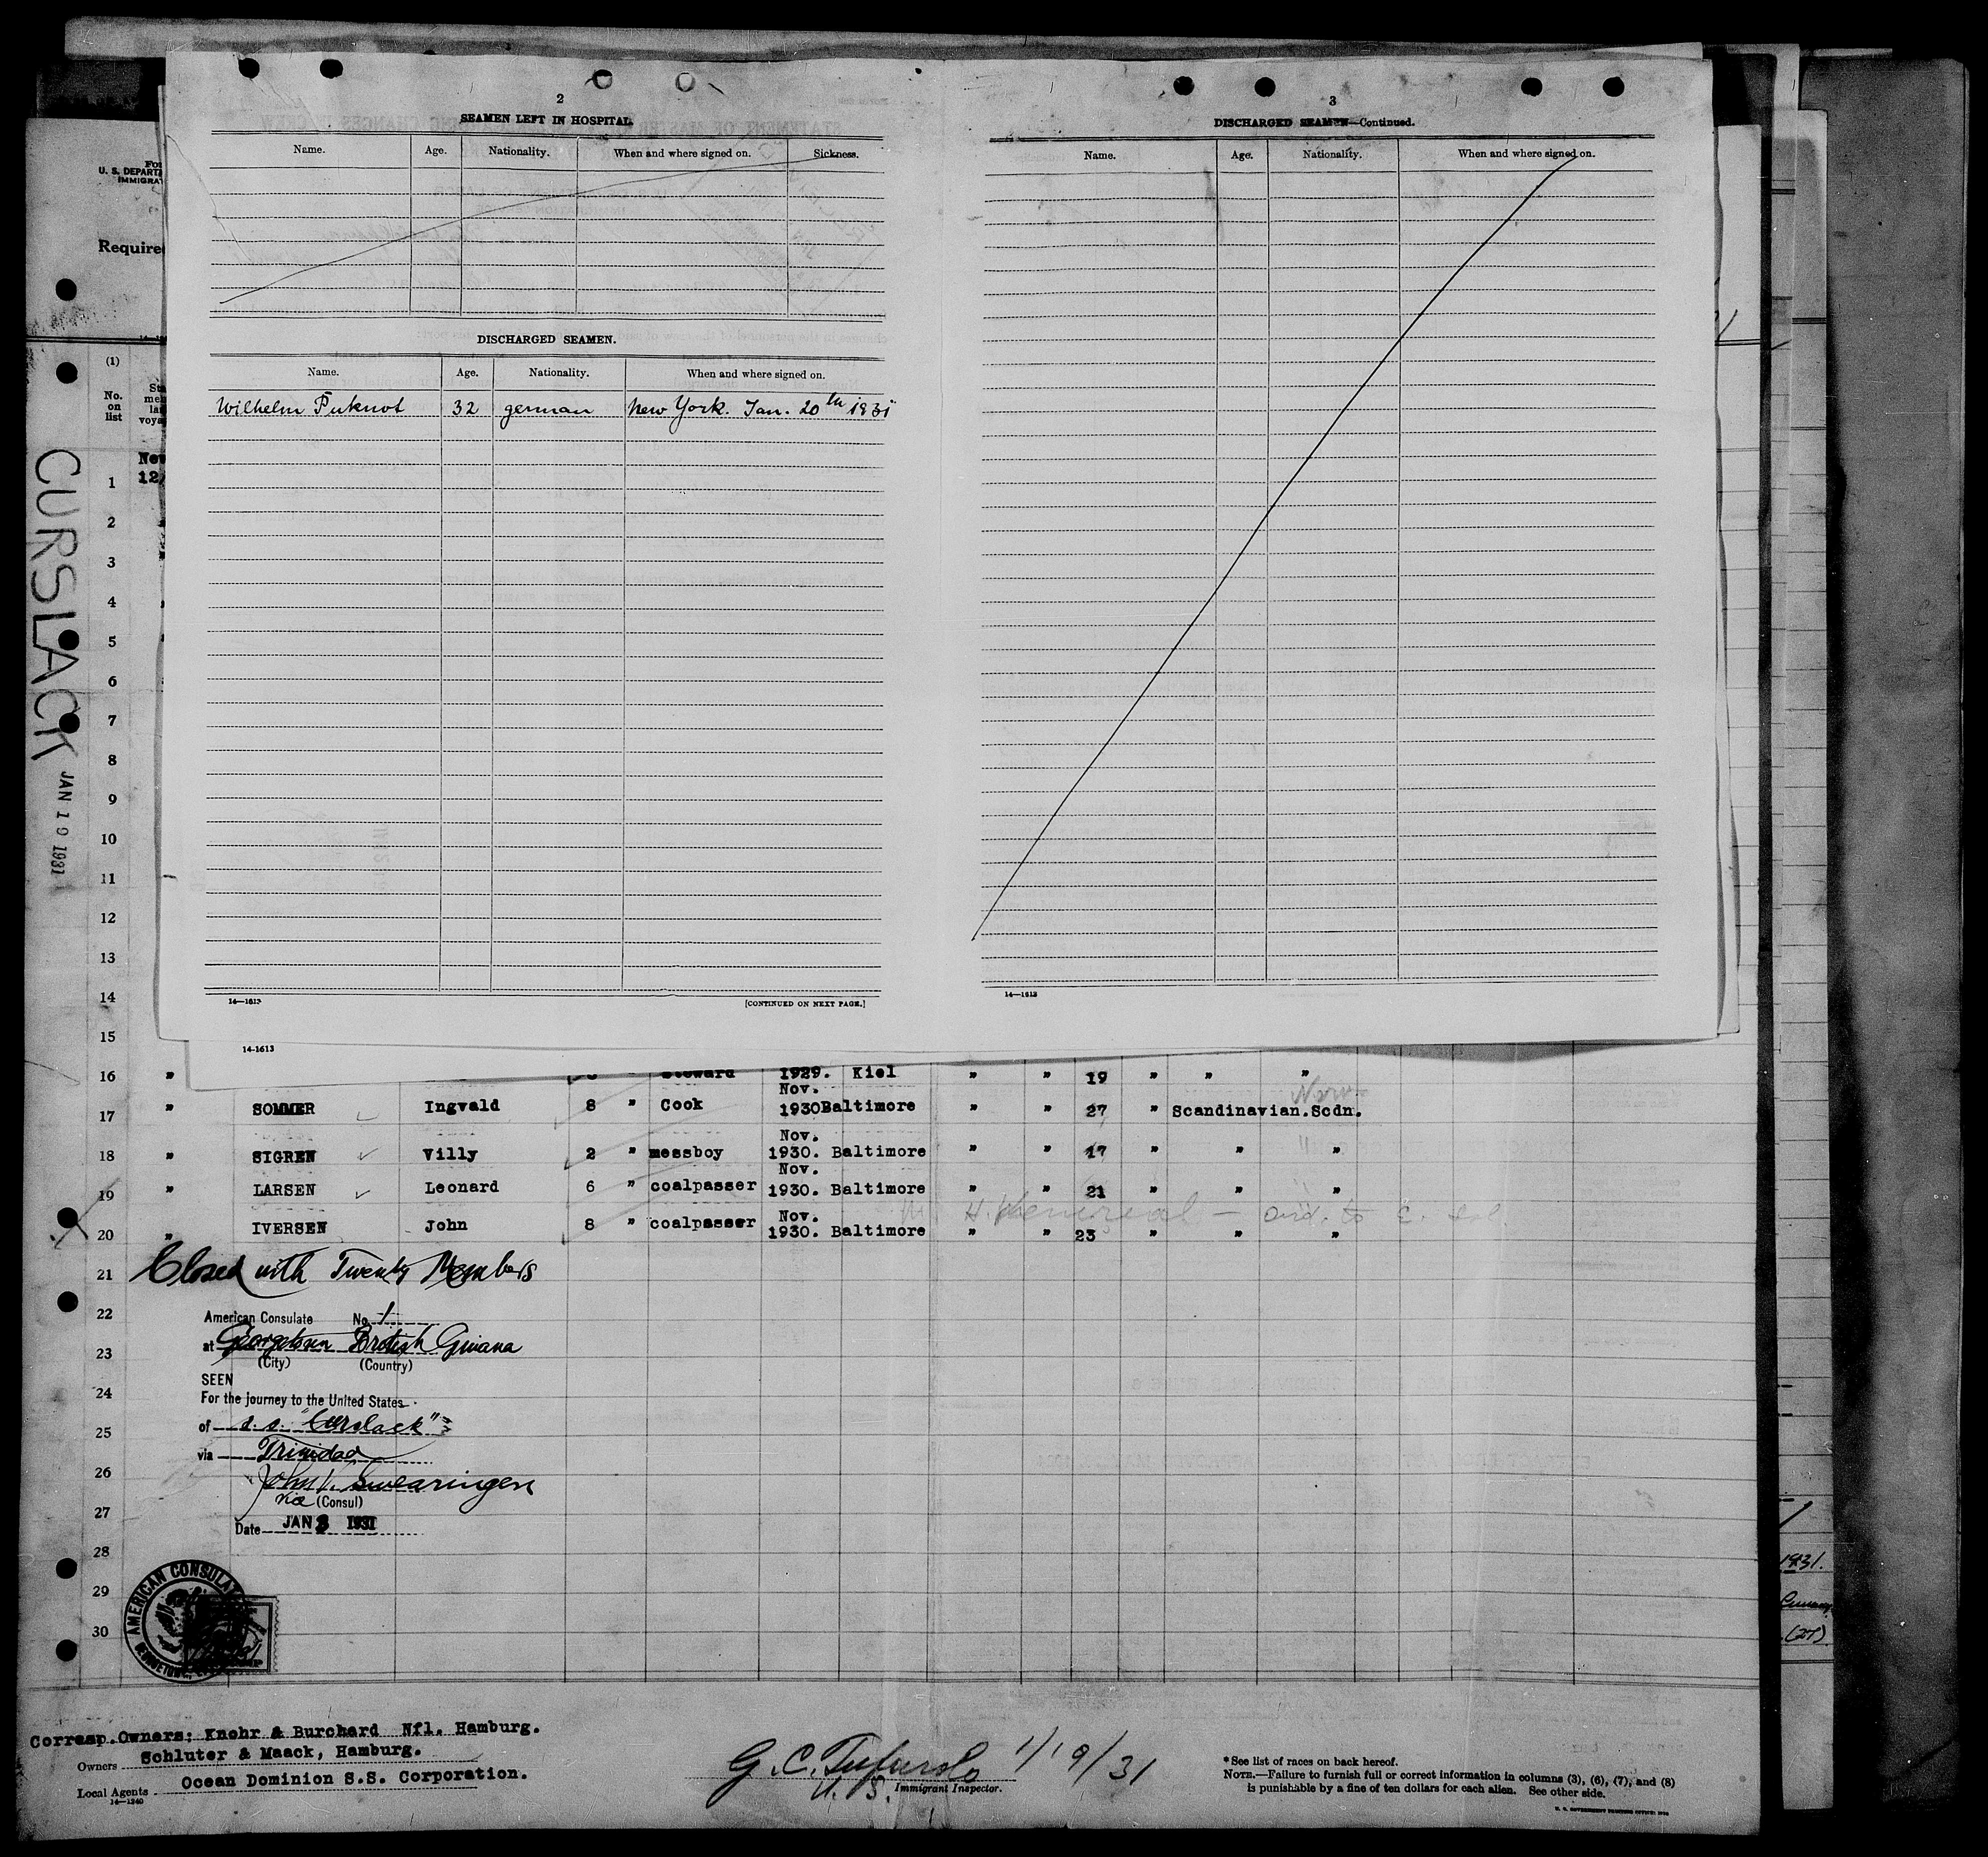 2
SEAMEN LEFT IN HOSPITAL.
Name. Age. Nationality. When and where signed on. Sickness.
DISCHARGED SEAMEN.
Name. Age. Nationality. When and where signed on.
Wilhelm 32 german New York. Jan. 20th 1931
14—1613 [CONTINUED ON NEXT PAGE.]
3
DISCHARGED SEAMEN—Continued.
Name. Age. Nationality. When and where signed on.
14—1613
14-1613
U. S. DEPART
IMMIGRA
Require
(1)
No.
on
list
CURSLACK
JAN 19 1931
12/
1
2
3
4
5
6
7
8
9
10
11
12
13
14
15
16 " " steward 1929. Kiel " " 19 " " "
Nov.
17 " SOMMER Ingvald 8 " Cook 1930 Baltimore " " 27 " Scandinavian. Scdn.
Nov.
18 " SIGREN Villy 2 " messboy 1930. Baltimore " " 17 " " "
Nov.
19 " LARSEN Leonard 6 " coalpasser 1930. Baltimore " " 21 " " "
Nov.
20 " IVERSEN John 8 " coalpasser 1930. Baltimore " " 23 " " "
21 Closed with Twenty Members
22 American Consulate No. 1
23 at Georgetown British Guiana
(City) (Country)
SEEN
24 For the journey to the United States
25 of s.s. "Curslack"
via Trinidad
26 John Swearingen
vice (Consul)
27 Date JAN 3 1931
28
29
30
AMERICAN CONSULATE
Corresp. Owners; Knohr & Burchard Nfl. Hamburg.
Owners Schluter & Maack, Hamburg.
Local Agents Ocean Dominion S.S. Corporation.
14—1240
G. C. 1/19/31
U.S. Immigrant Inspector.
* See list of races on back hereof.
NOTE.—Failure to furnish full or correct information in columns (3), (6), (7), and (8)
is punishable by a fine of ten dollars for each alien. See other side.
U. S. GOVERNMENT PRINTING OFFICE
1931.
(27)